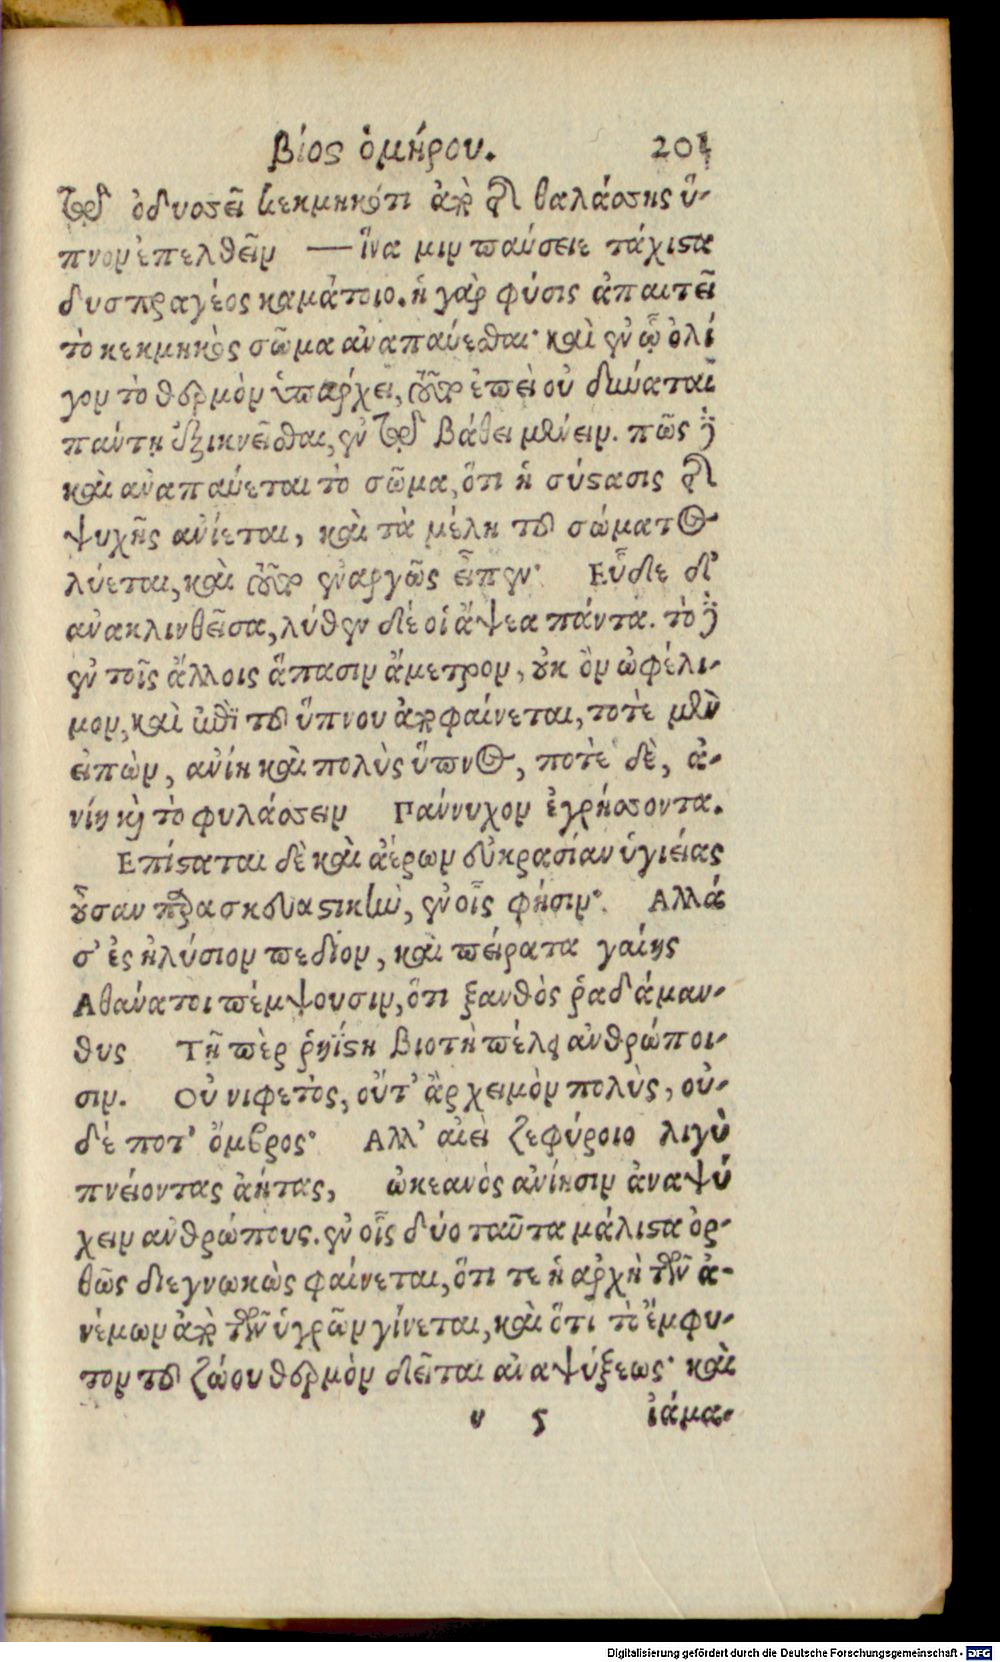 βίος ὁμήρου. 201
τῷ ὀδυσσεῖ κεκμηκότι ἀπὸ τῆς θαλάσσης ὕ-
πνον ἐπελθεῖν — ἵνα μιν παύσειε τάχιστα
δυσπραγέος καμάτοιο. ἡ γὰρ φύσις ἀπαιτεῖ
τὸ κεκμηκὸς σῶμα ἀναπαύεσθαι· καὶ ἐν ᾧ ὀλί
γον τὸ θερμὸν ὑπάρχει, τοῦτο ἐπεὶ οὐ δύναται
πάντῃ ἐξικνεῖσθαι, ἐν τῷ βάθει μένειν. πῶς δὲ
καὶ ἀναπαύεται τὸ σῶμα, ὅτι ἡ σύστασις τῆς
ψυχῆς ἀνίεται, καὶ τὰ μέλη τοῦ σώματος
λύεται, καὶ τοῦτο ἐναργῶς εἶπεν· Εὗδε δ'
ἀνακλινθεῖσα, λύθεν δέ οἱ ἅψεα πάντα. τὸ δὲ
ἐν τοῖς ἄλλοις ἅπασιν ἄμετρον, οὐκ ὂν ὠφέλι-
μον, καὶ ἐπὶ τοῦ ὕπνου ἀποφαίνεται, τοτὲ μὲν
εἰπὼν, ἀνίη καὶ πολὺς ὕπνος, ποτὲ δὲ, ἀ-
νίη καὶ τὸ φυλάσσειν Πάννυχον ἐγρήσσοντα.
Επίσταται δὲ καὶ ἀέρων εὐκρασίαν ὑγιείας
οὖσαν παρασκευαστικὴν, ἐν οἷς φησιν· Αλλά
σ' ἐς ἠλύσιον πεδίον, καὶ πείρατα γαίης
Αθάνατοι πέμψουσιν, ὅτι ξανθὸς ῥαδάμαν-
θυς Τῇ περ ῥηΐστη βιοτὴ πέλει ἀνθρώποι-
σιν. Οὐ νιφετὸς, οὔτ' ἂρ χειμὸν πολὺς, οὐ-
δέ ποτ' ὄμβρος· Αλλ' αἰεὶ ζεφύροιο λιγὺ
πνείοντας ἀήτας, ὠκεανὸς ἀνίησιν ἀναψύ
χειν ἀνθρώπους. ἐν οἷς δύο ταῦτα μάλιστα ὀρ-
θῶς διεγνωκὼς φαίνεται, ὅτι τε ἡ ἀρχὴ τῶν ἀ-
νέμων ἀπὸ τῶν ὑγρῶν γίνεται, καὶ ὅτι τὸ ἔμφυ-
τον τοῦ ζώου θερμὸν δεῖται ἀναψύξεως· καὶ
υ 5 ἰάμα-
Digitalisierung gefördert durch die Deutsche Forschungsgemeinschaft - DFG